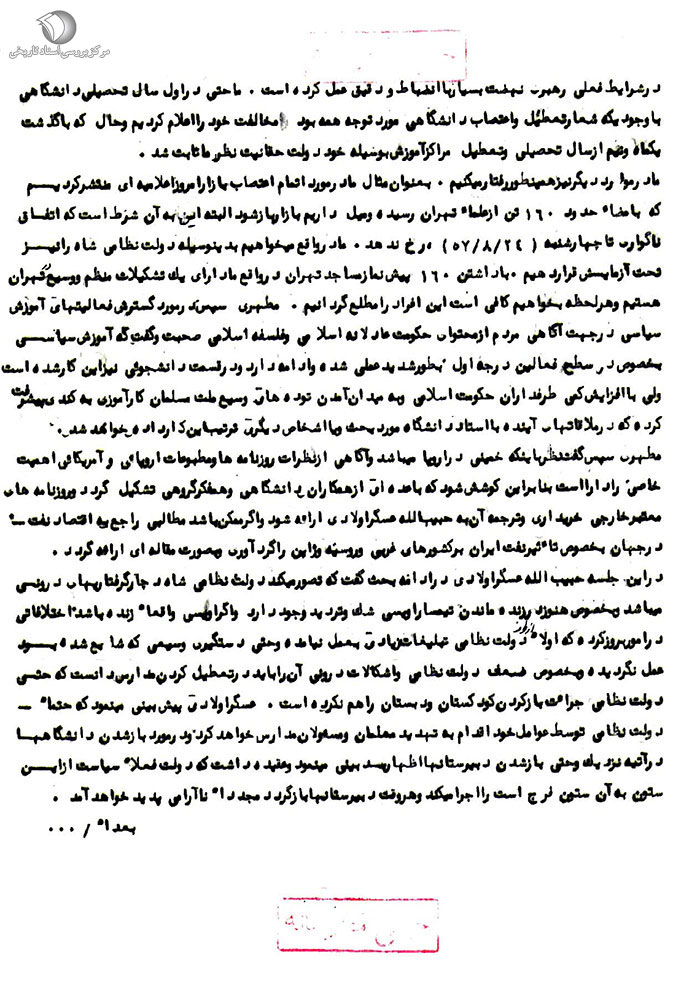 مرکز بررسی اسناد تاریخی
در شرایط فعلی رهبری نهضت بسیار با انضباط و دقیق عمل کرده است . ما حتی در اول سال تحصیلی دانشگاهی
با وجودیکه شعار تعطیل و اعتصاب دانشگاهی مورد توجه همه بود مخالفت خود را اعلام کردیم و حال که با گذشت
یکماه و نیم از سال تحصیلی و تعطیل مراکز آموزش بوسیله خود دولت حقانیت نظر ما ثابت شد .
ما در موارد دیگر نیز همینطور رفتار میکنیم . بعنوان مثال ما در مورد اتمام اعتصاب بازار امروز اعلامیه ای منتشر کردیم
که بامضاء حدود ۱۶۰ تن از علماء تهران رسیده و میل داریم بازار باز شود البته این به آن شرط است که اتفاق
ناگواری تا چهارشنبه ( ۵۷/۸/۲۴ ) رخ ندهد . ما در واقع میخواهیم بدینوسیله دولت نظامی شاه را نیز
تحت آزمایش قرار دهیم . با داشتن ۱۶۰ پیش نماز مساجد تهران در واقع ما دارای یک تشکیلات منظم و وسیع در تهران
هستیم و هر لحظه بخواهیم کافی است این افراد را مطلع گردانیم . مطهری سپس در مورد گسترش فعالیتهای آموزش
سیاسی در جهت آگاهی مردم از محتوای حکومت عادلانه اسلامی و فلسفه اسلامی صحبت و گفت که آموزش سیاسی
بخصوص در سطح فعالین درجه اول بطور شدید عملی شده و ادامه دارد و در قسمت دانشجوئی نیز این کار شده است
ولی با افزایش کمی طرفداران حکومت اسلامی و به میدان آمدن توده های وسیع ملت مسلمان کارآموزی به کندی پیشرفت
کرده که در ملاقاتهای آینده با استاد دانشگاه مورد بحث و یا اشخاص دیگری ترتیب این کار داده خواهد شد .
مطهری سپس گفت نظر باینکه خمینی در اروپا میباشد و آگاهی از نظرات روزنامه ها و مطبوعات اروپائی و آمریکائی اهمیت
خاصی را دارا است بنابراین کوشش شود که با عده ای از همکاران دانشگاهی و همفکر گروهی تشکیل گردد و روزنامه های
معتبر خارجی خریداری و ترجمه آن به حبیب الله عسگراولادی ارائه شود و اگر ممکن باشد مطالبی راجع به اقتصاد نفت -
در جهان بخصوص تاثیر نفت ایران بر کشورهای غربی و روسیه و ژاپن را گردآوری و بصورت مقاله ای ارائه گردد .
در این جلسه حبیب الله عسگراولادی در ادامه بحث گفت که تصور میکند دولت نظامی شاه دچار گرفتاریهای درونی
میباشد و بخصوص هنوز در زنده ماندن تیمسار اویسی شک و تردید وجود دارد و اگر اویسی واقعاً زنده باشد اختلافاتی
در امور بروز کرده که اولاً از دولت نظامی تبلیغات زیادی بعمل نیامده و حتی دستگیری وسیعی که شایع شده بود
عمل نگردیده و بخصوص ضعف دولت نظامی و اشکالات درونی آن را باید در تعطیل کردن مدارس دانست که حتی
دولت نظامی جرات باز کردن کودکستان و دبستان را هم نکرده است . عسگراولادی پیش بینی مینمود که حتماً -
دولت نظامی توسط عوامل خود اقدام به تهدید معلمان و مسئولان مدارس خواهد کرد و در مورد باز شدن دانشگاهها
در آتیه نزدیک و حتی باز شدن دبیرستانها اظهار بدبینی مینمود و عقیده داشت که دولت فعلاً سیاست از این
ستون به آن ستون فرج است را اجرا میکند و هر وقت دبیرستانها باز گردد مجدداً ناآرامی پدید خواهد آمد .
بعداً / ۰۰۰